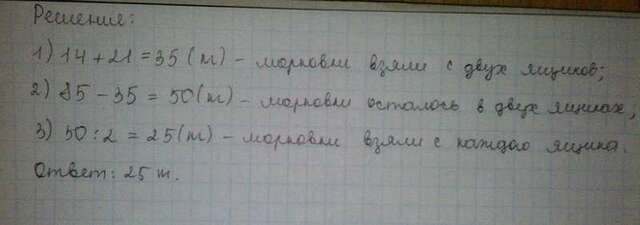 Решение:
1) 14 + 21 = 35 (т) - морковки взяли с двух ящиков;
2) 85 - 35 = 50 (т) - морковки осталось в двух ящиках,
3) 50 : 2 = 25 (т) - морковки взяли с каждого ящика.
Ответ: 25 т.